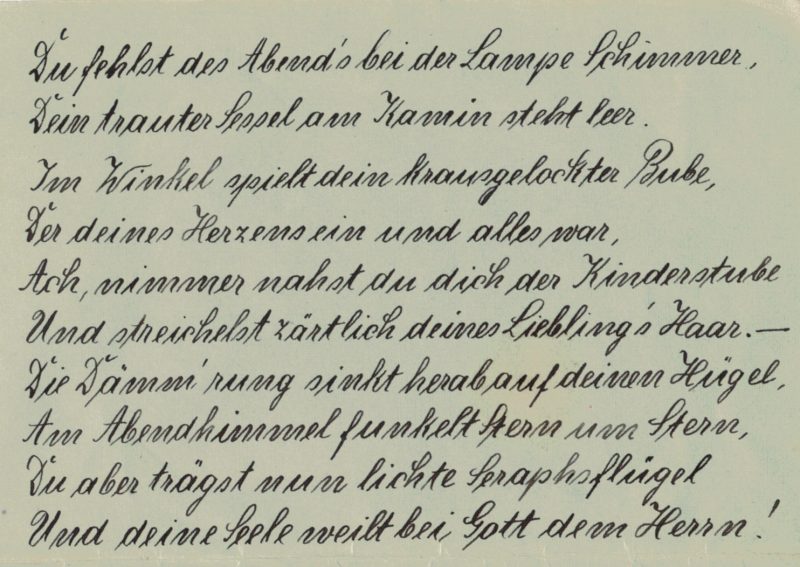 Du fehlst des Abend's bei der Lampe Schimmer,
Dein trauter Sessel am Kamin steht leer.
Im Winkel spielt dein krausgelockter Bube,
Der deines Herzens ein und alles war,
Ach, nimmer nahst du dich der Kinderstube
Und streichelst zärtlich deines Liebling's Haar.—
Die Dämm'rung sinkt herab auf deinen Hügel,
Am Abendhimmel funkelt Stern um Stern,
Du aber trägst nun lichte Seraphsflügel
Und deine Seele weilt bei Gott dem Herrn!